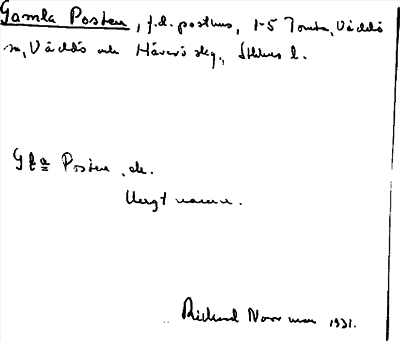 Gamla Posten, f.d. posthus, 1-5 Tomta, Väddö
sn, Väddö och Häverö skg., Sthlms l.
Gla Posten, de.
Ungt namn.
Rickard Norrman 1931.